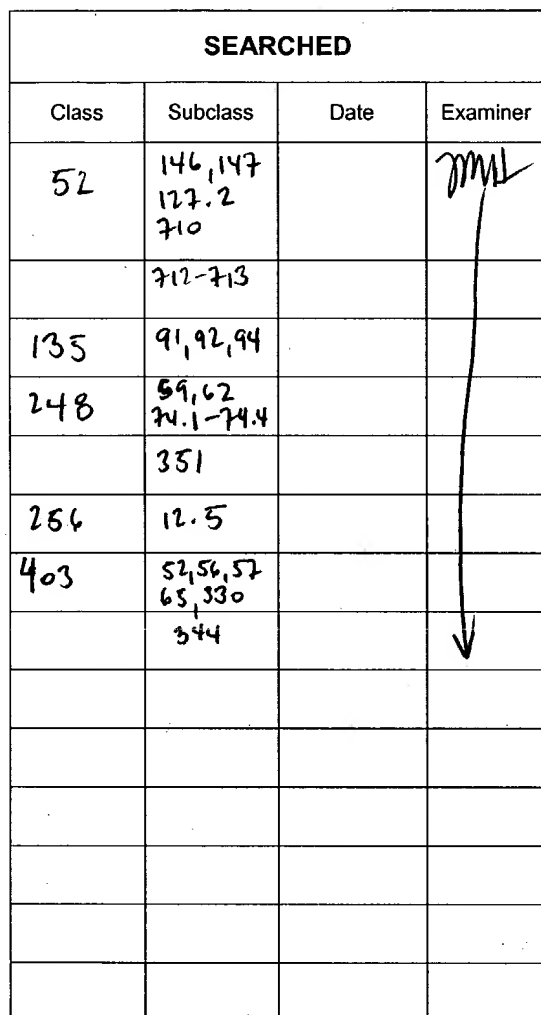 SEARCHED
Class Subclass Date Examiner
52 146, 147
127.2
710
712-713
135 91, 92, 94
248 59, 62
74.1-74.4
351
256 12.5
403 52, 56, 57
65, 330
344